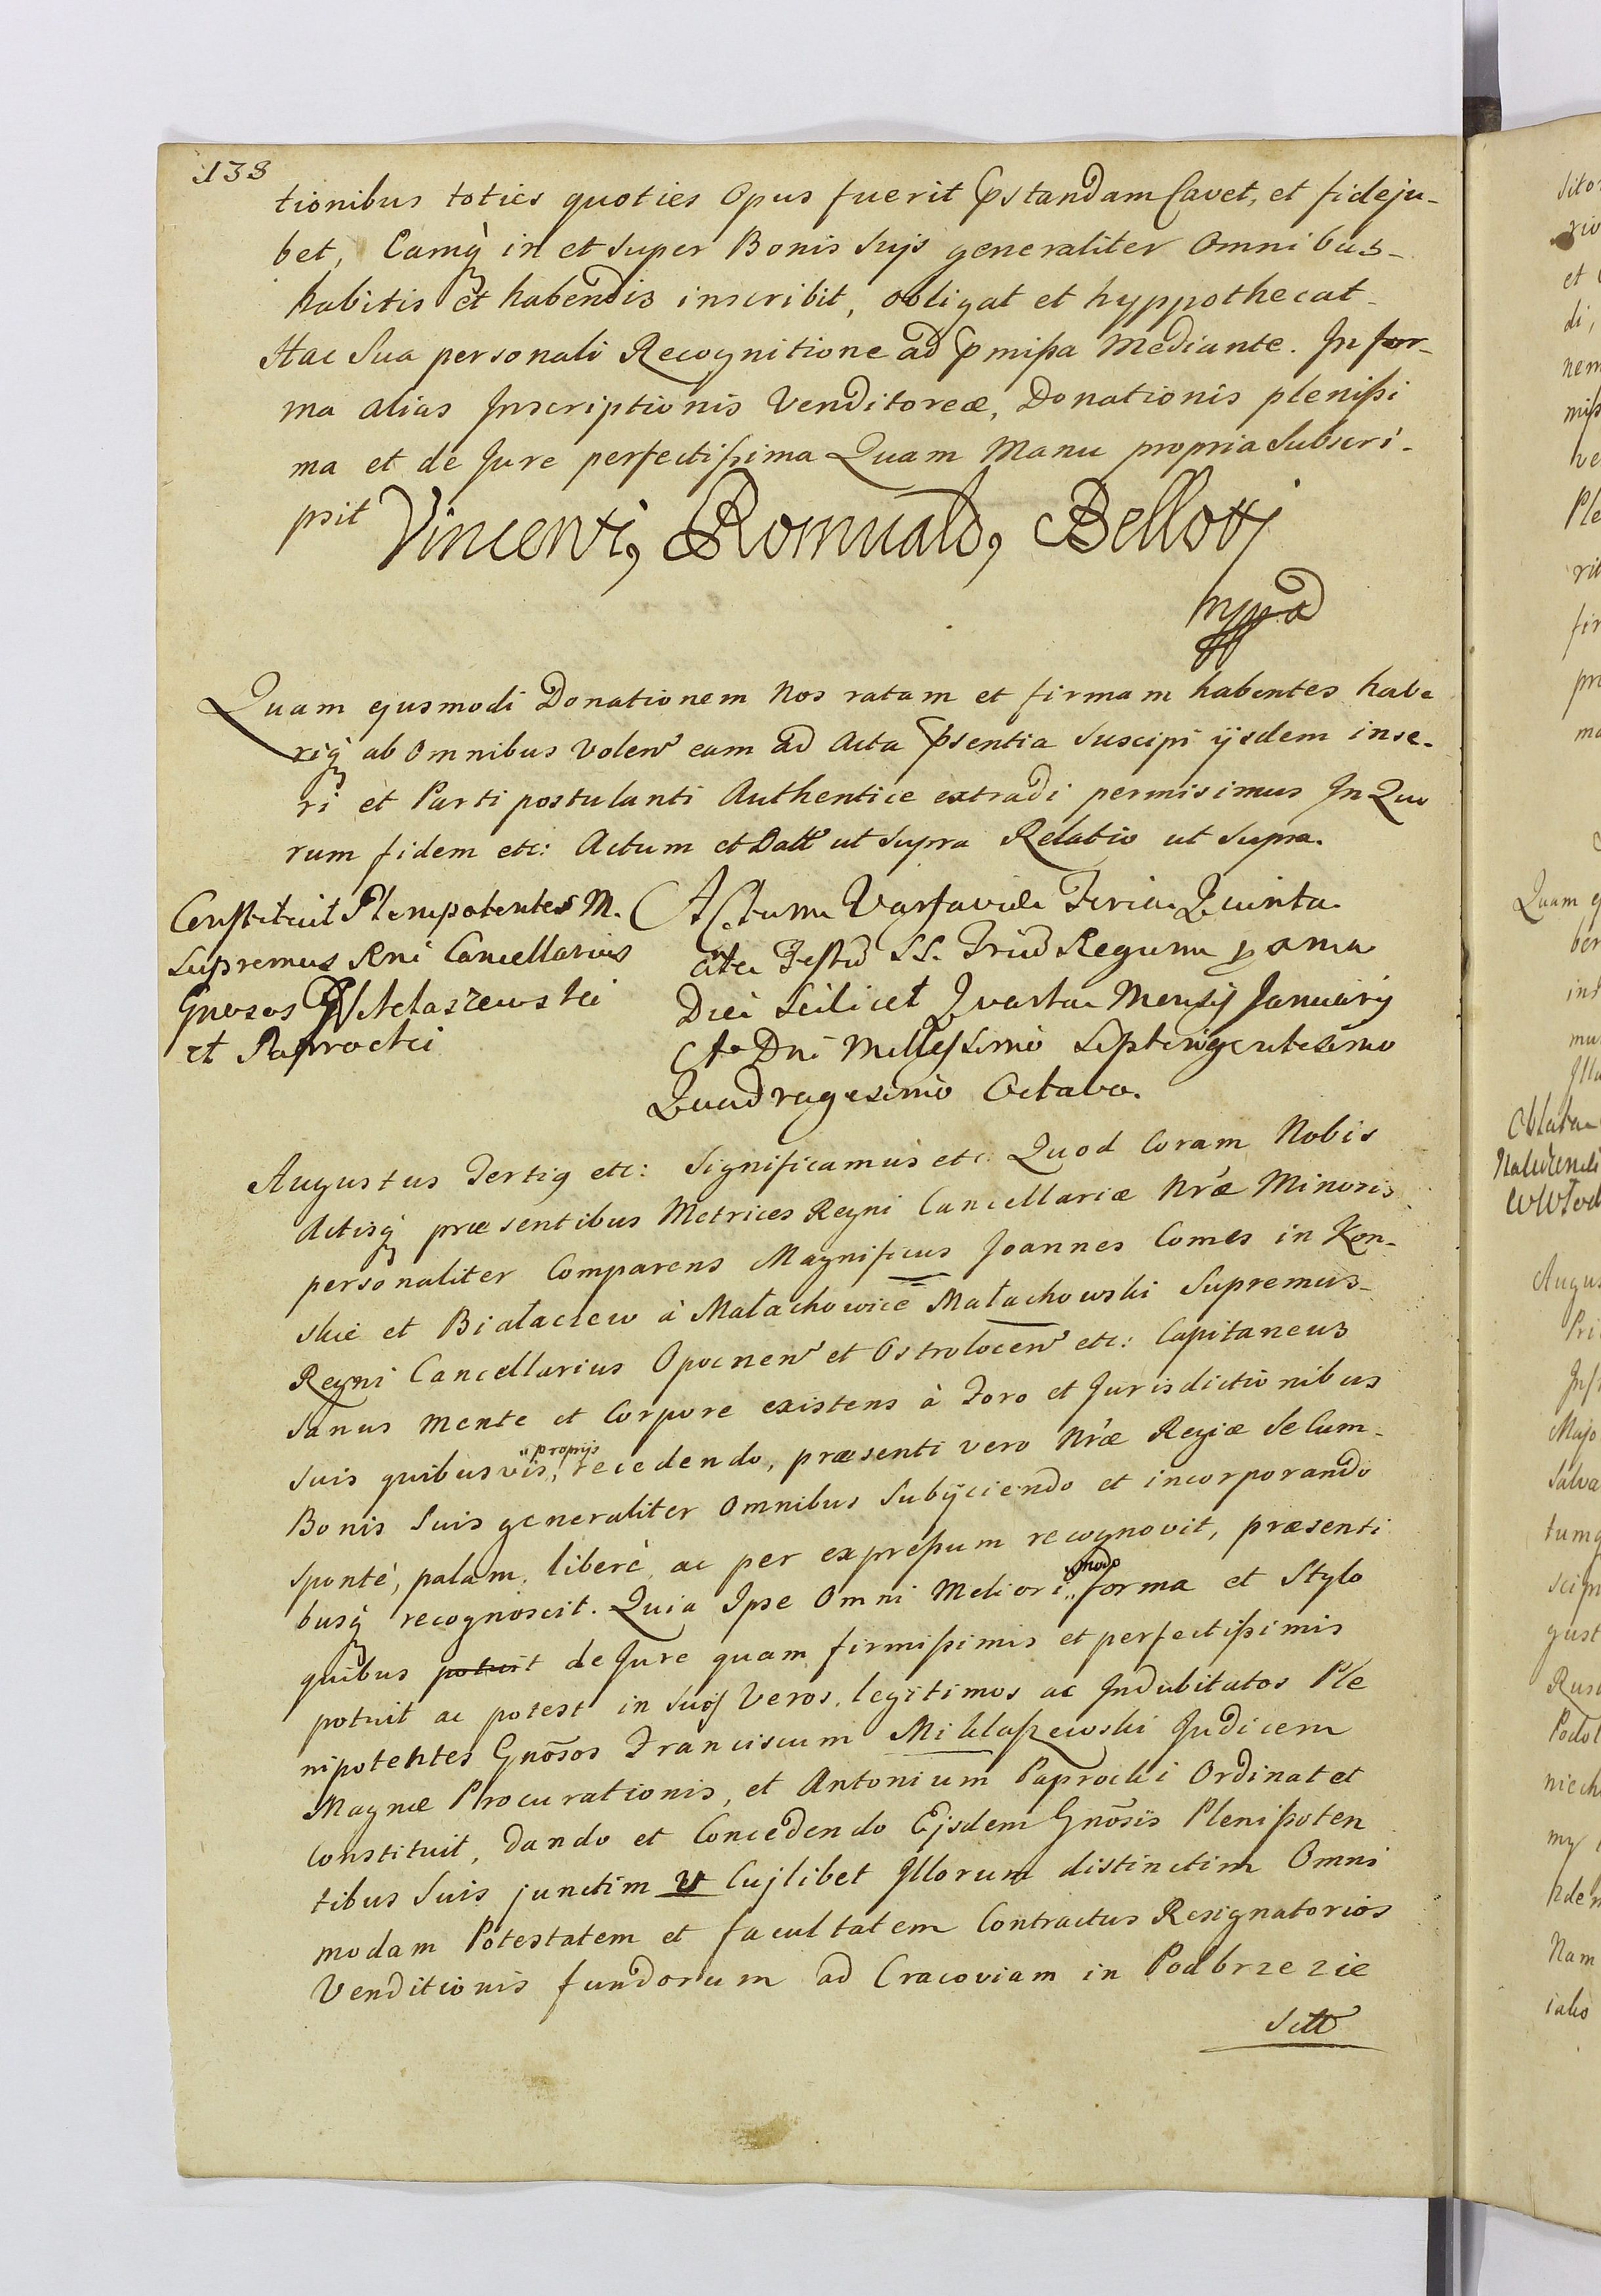 138
tionibus toties quoties Opus fuerit pstandam Cavet, et fideju-
bet, Eamq in et super Bonis suis generaliter Omnibus-
habitis et habendis inscribit, obligat et hyppothecat-
Hac Sua personali Recognitione ad pmißa Mediante. In for-
ma alias Inscriptionis Venditoreæ, Donationis plenißi
ma et de Jure perfectißima Quam Manu propria Subscri-
psit Vincenti9 Romuald9 Bellotti
mppa
Quam ejusmodi Donationem Nos ratam et firmam habentes habe
riq ab Omnibus Volen eam ad Acta psentia Suscipi ijsdem inse-
ri et Parti postulanti Authentice extradi permisimus In Quo
rum fidem etc: Actum et Datt ut supra Relatio ut Supra.
Constituit Plenipotentes M.
Supremus Rni Cancellarius
Gnosos Miklaszewski
et Paprocki
Actum Varsaviæ Feria Quinta
ante Festu SS. Triu Regum pxma
Die Scilicet Quarta Mensis January
Ao Dni Millessimo Septingentesimo
Quadragesimo Octavo.
Augustus Tertig etc: Significamus etc. Quod Coram Nobis
Actisq præsentibus Metrices Regni Cancellariæ Nræ Minoris
personaliter Comparens Magnificus Joannes Comes in Kon-
skie et Białaczew à Małachowice Małachowski Supremus-
Regni Cancellarius Opocnen et Ostrolocen etc: Capitaneus
Sanus Mente et Corpore existens à Foro et Jurisdictionibus
suis quibusvis, proprijs recedendo, præsenti vero Nræ Regiæ Se Cum-
Bonis Suis generaliter Omnibus Subijciendo et incorporando
sponté, palam, liberè, ac per expreßum recognovit, præsenti
busq recognoscit. Quia Ipse Omni Meliori modo forma et Stylo
quibus potuit de Jure quam firmißimis et perfectißimis
potuit ac potest in suos Veros, legitimos ac Indubitatos Ple
nipotentes Gnõsos Franciscum Miklaszewski Judicem
Magnæ Procurationis, et Antonium Paprocki Ordinat et
Constituit, dando et Concedendo Eisdem Gnõsis Plenipoten
tibus Suis junctim et Cujlibet Illorum distinctim Omni
modam Potestatem et facultatem Contractus Resignatorios
Venditionis fundorum ad Cracoviam in Podbrzezie